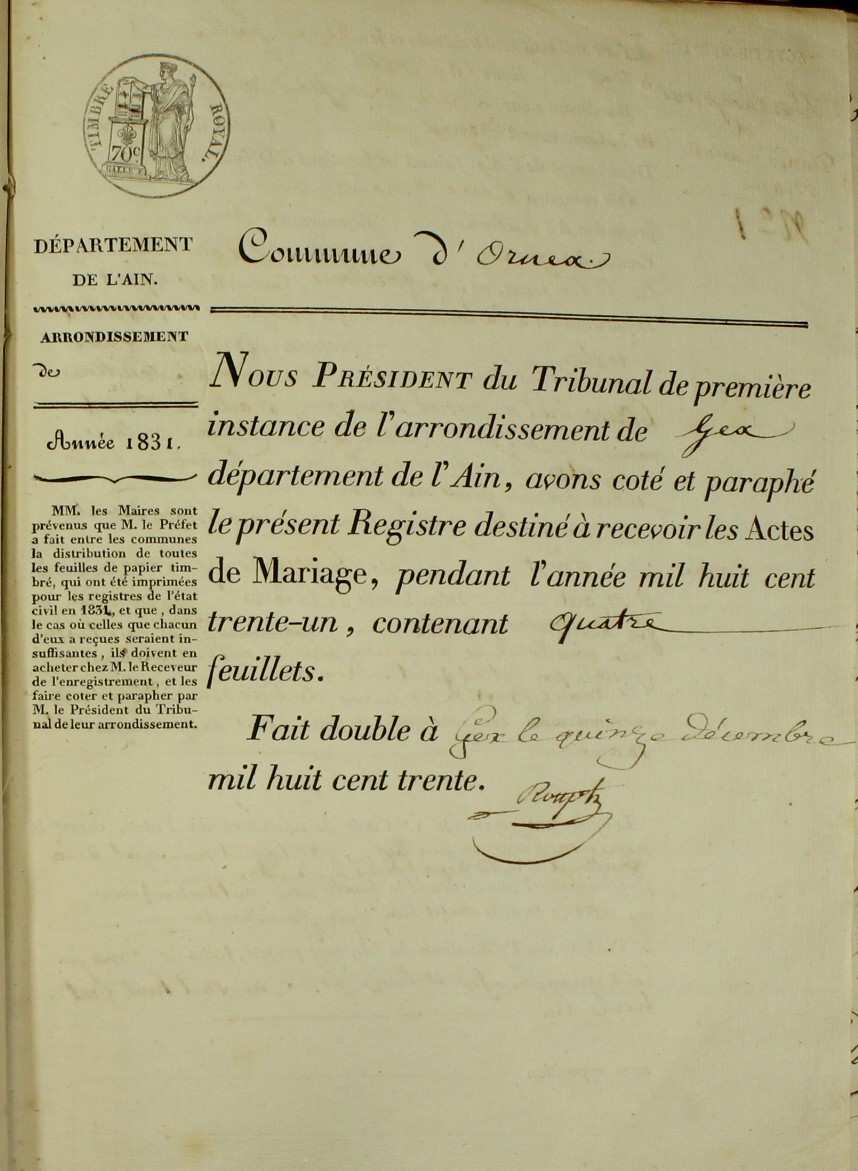 TIMBRE ROYAL.
70c
DÉPARTEMENT
DE L'AIN.
Commune d'Ornex
ARRONDISSEMENT
de
Année 1831.
MM. les Maires sont
prévenus que M. le Préfet
a fait entre les communes
la distribution de toutes
les feuilles de papier tim-
bré, qui ont été imprimées
pour les registres de l'état
civil en 1831, et que, dans
le cas où celles que chacun
d'eux a reçues seraient in-
suffisantes, ils doivent en
acheter chez M. le Receveur
de l'enregistrement, et les
faire coter et parapher par
M. le Président du Tribu-
nal de leur arrondissement.
NOUS PRÉSIDENT du Tribunal de première
instance de l'arrondissement de Gex
département de l'Ain, avons coté et paraphé
le présent Registre destiné à recevoir les Actes
de Mariage, pendant l'année mil huit cent
trente-un, contenant quatre
feuillets.
Fait double à Gex le quinze Décembre
mil huit cent trente.